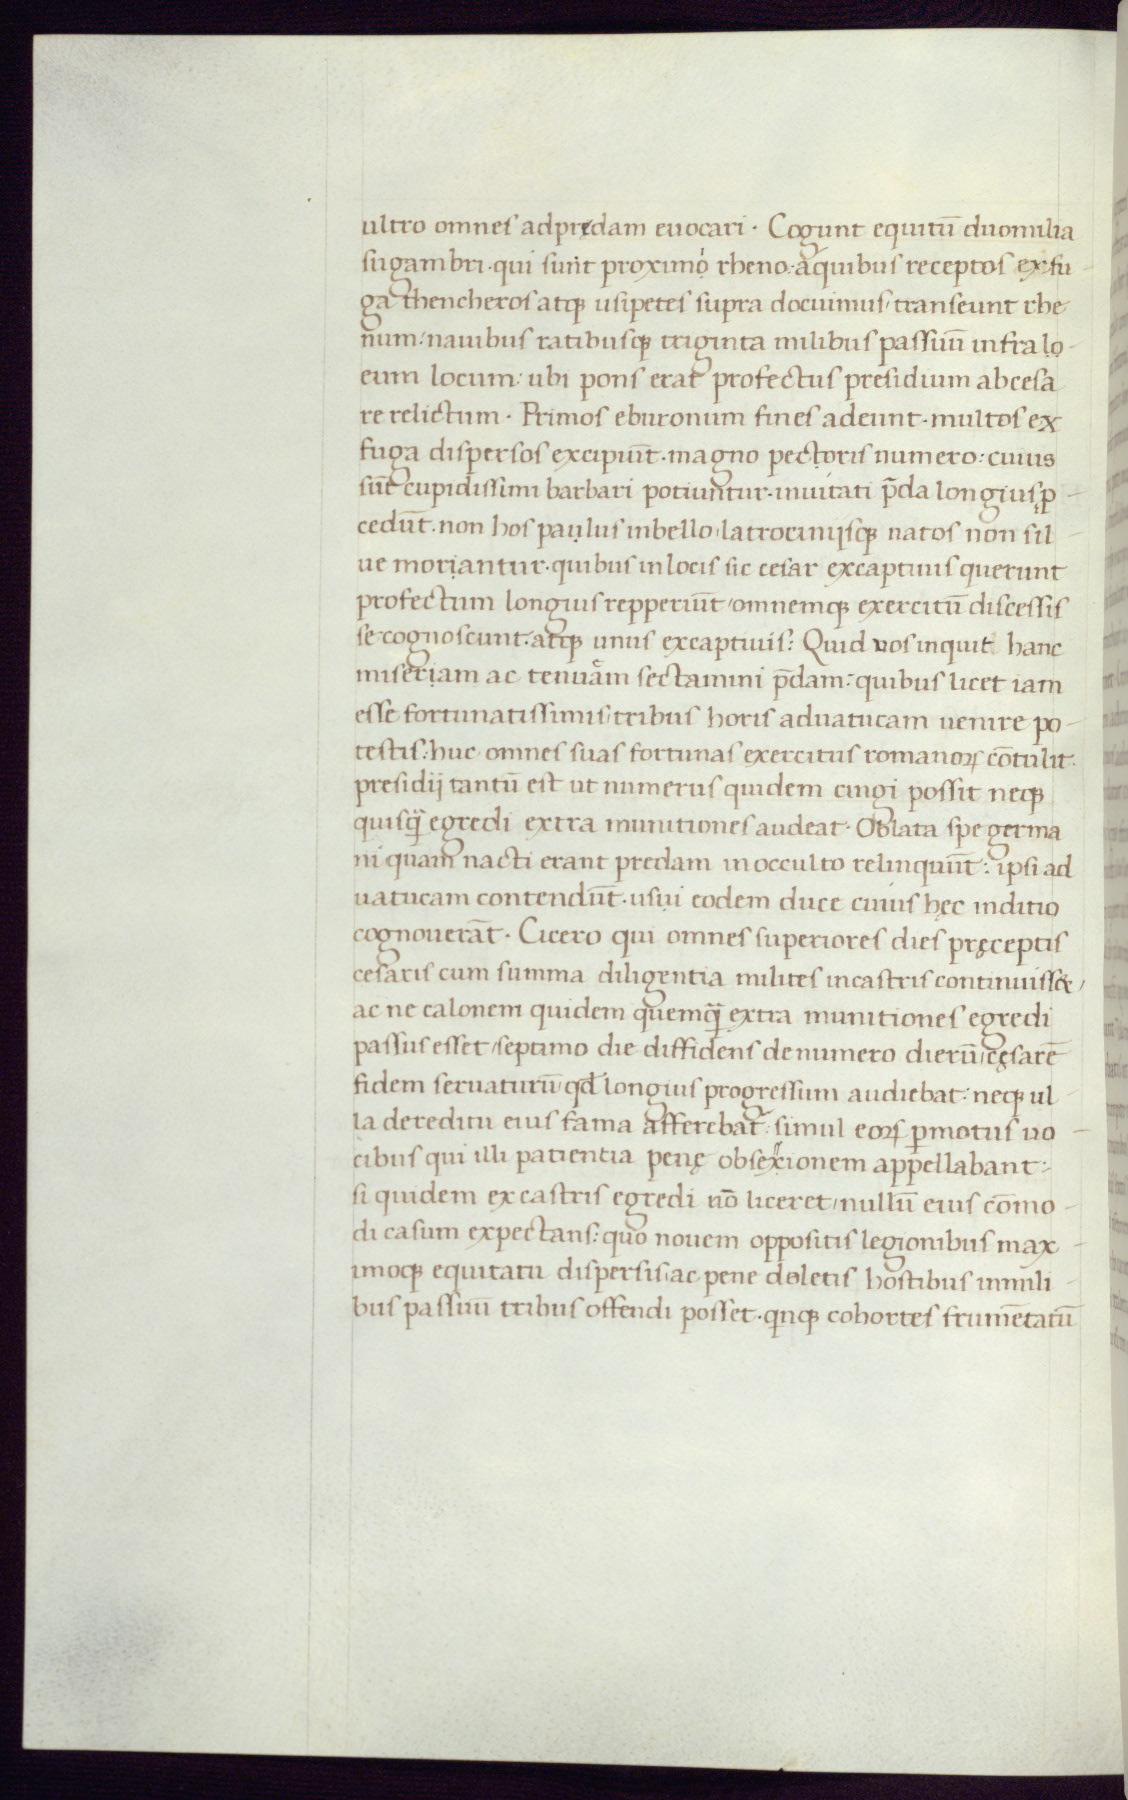 ultro omnes adprędam euocari · Cogunt equitū duomilia
sugambri · qui sunt proximo rheno · aquibus receptos exfu-
ga thencheros atqꝫ usipetes supra docuimus / transeunt rhe
num : nauibus ratibusqꝫ triginta milibus passuū infra lo-
eum locum : ubi pons erat profectus presidium abcesa
re relictum · Primos eburonum fines adeunt · multos ex
fuga dispersos excipiūt · magno pectoris numero : cuius
sūt cupidissimi barbari potiuntur · inuitati p̄da longius ꝓ-
cedūt · non hos paulus inbello / latrocinijsqꝫ natos non sil-
ue moriantur · quibus inlocis sic cesar excaptiuis querunt
profectum longius repperiūt / omnemqꝫ exercitū discessis
se cognoscunt · atqꝫ unus excaptiuis : Quid uos inquit hanc
miseriam ac tenuam sectamini p̄dam : quibus licet iam
esse fortunatissimis / tribus horis aduatucam uenire po-
testis : huc omnes suas fortunas exercitus romanoꝝ cōtulit :
presidij tantū est ut numerus quidem cingi possit neqꝫ
quisq̄ egredi extra munitiones audeat · Oblata spe germa
ni quam nacti erant predam inocculto relinquūt : ipsi ad
uatucam contendūt · usui eodem duce cuius hęc inditio
cognouerāt · Cicero qui omnes superiores dies pręceptis
cesaris cum summa diligentia milites incastris continuiss& /
ac ne calonem quidem quemq̄ extra munitiones egredi
passus esset / septimo die diffidens denumero dierū / cęsarē
fidem seruaturū qđ longius progressum audiebat : neqꝫ ul-
la dereditu eius fama afferebat : simul eoꝝ ꝑmotus uo-
cibus qui illi patientia penę obsexionem appellabant :
si quidem excastris egredi nō liceret / nullū eius cōmo-
di casum expectans : quo nouem oppositis legionibus max-
imoqꝫ equitatu dispersis / ac pene deletis hostibus inmili-
bus passuū tribus offendi posset · qnqꝫ cohortes frumētatū